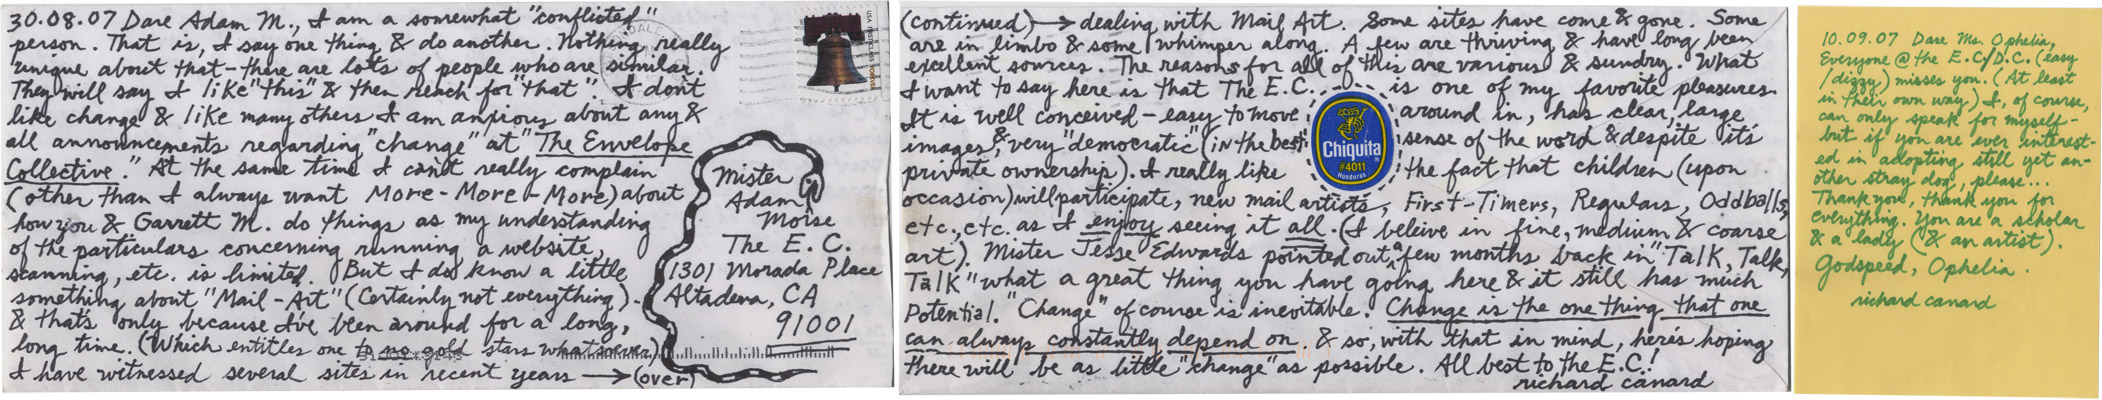 30.08.07 Dare Adam M., I am a somewhat "conflicted"
person. That is, I say one thing & do another. Nothing really
unique about that - there are lots of people who are similar.
They will say I like "this" & then reach for "that". I don't
like change & like many others I am anxious about any &
all announcements regarding "change" at "The Envelope
Collective." At the same time I can't really complain
(other than I always want More-More-More) about
how you & Garrett M. do things as my understanding
of the particulars concerning running a website,
scanning, etc. is limited. But I do know a little
something about "Mail-Art" (Certainly not everything).
& that's only because I've been around for a long,
long time. (Which entitles one to no gold stars whatsoever)
I have witnessed several sites in recent years → (over)
USA FIRST-CLASS FOREVER
Mister
Adam
Morse
The E.C.
1301 Morada Place
Altadena, CA
91001
(continued) → dealing with Mail Art. Some sites have come & gone. Some
are in limbo & some whimper along. A few are thriving & have long been
excellent sources. The reasons for all of this are various & sundry. What
I want to say here is that The E.C... is one of my favorite pleasures.
It is well conceived - easy to move around in, has clear, large
images, & very "democratic" (in the best sense of the word & despite it's
private ownership). I really like the fact that children (upon
occasion) will participate, new mail artists, First-Timers, Regulars, Oddballs,
etc., etc. as I enjoy seeing it all. (I beleive in fine, medium & coarse
art). Mister Jesse Edwards pointed out, a few months back in "Talk, Talk,
Talk" what a great thing you have going here & it still has much
Potential. "Change" of course is inevitable. Change is the one thing that one
can always constantly depend on. & so, with that in mind, here's hoping
there will be as little "change" as possible. All best to the E.C.!
richard canard
Chiquita
®
#4011
Honduras
10.09.07 Dare Ms. Ophelia,
Everyone @ the E.C/D.C. (easy
/dizzy) misses you. (At least
in their own way) I, of course,
can only speak for myself -
but if you are ever interest-
ed in adopting still yet an-
other stray dog, please...
Thank you, thank you for
everything. You are a scholar
& a lady (& an artist).
Godspeed, Ophelia.
richard canard